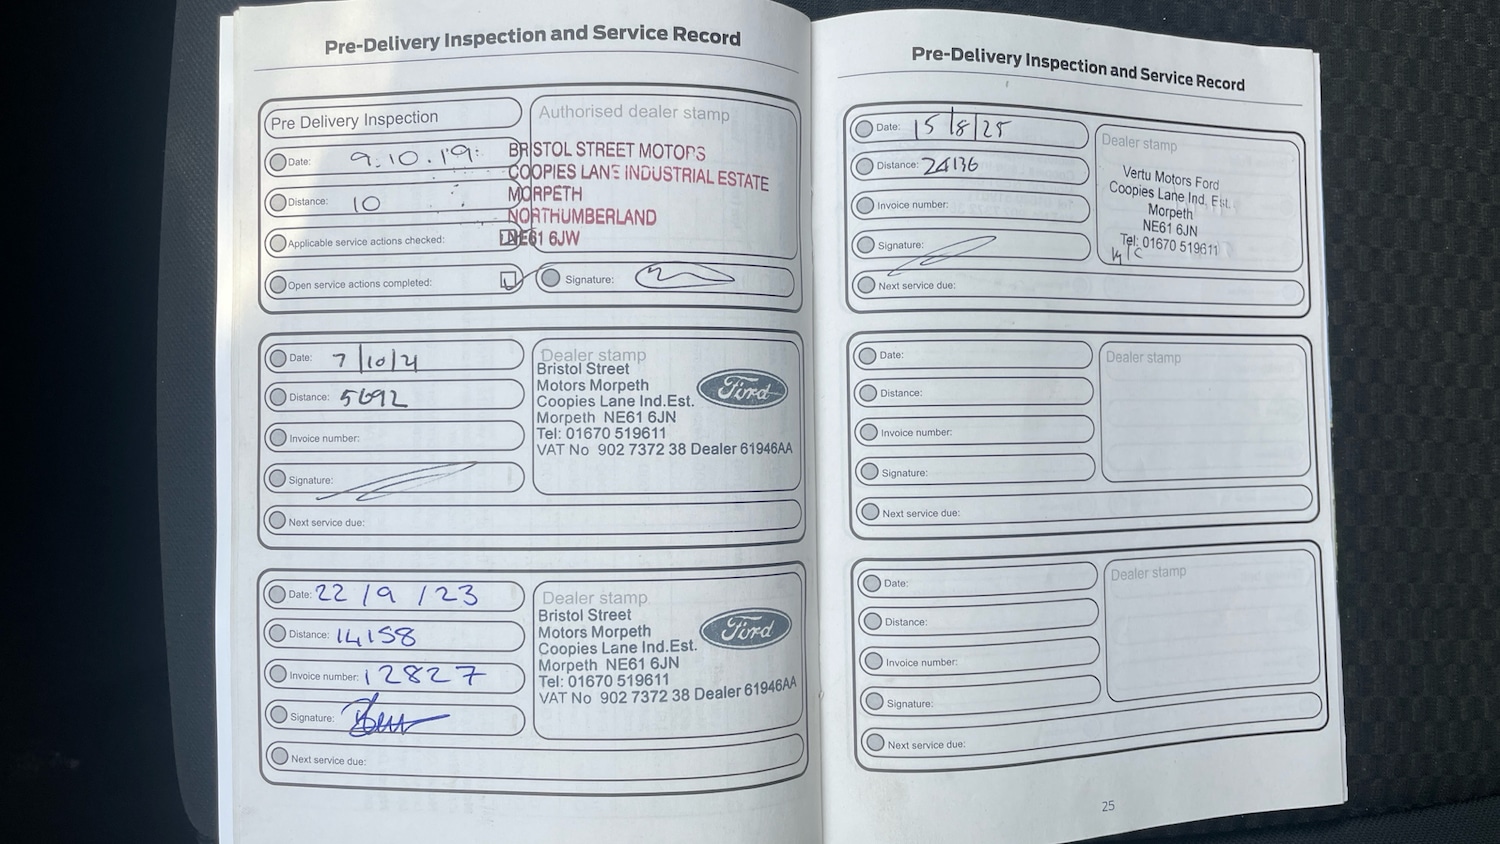 Pre-Delivery Inspection and Service Record
Pre Delivery Inspection
Date: 9.10.19
Distance: 10
Applicable service actions checked:
Open service actions completed:
Authorised dealer stamp
BRISTOL STREET MOTORS
COOPIES LANE INDUSTRIAL ESTATE
MORPETH
NORTHUMBERLAND
NE61 6JW
Signature:
Date: 7/10/21
Distance: 5692
Invoice number:
Signature:
Next service due:
Dealer stamp
Bristol Street
Motors Morpeth
Coopies Lane Ind.Est.
Morpeth NE61 6JN
Tel: 01670 519611
VAT No 902 7372 38 Dealer 61946AA
Ford
Date: 22/9/23
Distance: 14158
Invoice number: 12827
Signature:
Next service due:
Dealer stamp
Bristol Street
Motors Morpeth
Coopies Lane Ind.Est.
Morpeth NE61 6JN
Tel: 01670 519611
VAT No 902 7372 38 Dealer 61946AA
Ford
Pre-Delivery Inspection and Service Record
Date: 15/8/25
Distance: 24136
Invoice number:
Signature:
Next service due:
Dealer stamp
Vertu Motors Ford
Coopies Lane Ind. Est.
Morpeth
NE61 6JN
Tel: 01670 519611
Date:
Distance:
Invoice number:
Signature:
Next service due:
Dealer stamp
Date:
Distance:
Invoice number:
Signature:
Next service due:
Dealer stamp
25